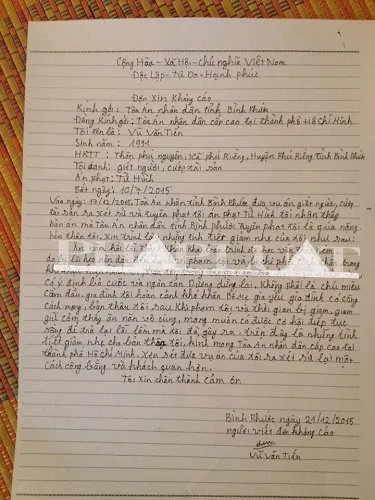 Cộng Hòa - Xã Hội - Chủ nghĩa Việt Nam
Độc Lập - Tự Do - Hạnh phúc
Đơn Xin Kháng Cáo
Kính gởi : Tòa Án nhân dân tỉnh Bình Phước
Đồng Kính gởi : Tòa Án nhân dân cấp cao tại thành phố Hồ Chí Minh
Tôi tên là : Vũ Văn Tiến
Sinh năm : 1991
HKTT : Thôn phú nguyên, Xã phú Riềng, Huyện Phú Riềng Tỉnh Bình Phước
Tội danh : giết người, cướp tài sản
Án phạt : Tử Hình
Bắt ngày : 10/7/2015
Vào ngày : 17/12/2015, Tòa Án nhân dân tỉnh Bình Phước đưa vụ án giết người, cướp
tài sản ra xét xử và tuyên phạt tôi án phạt Tử Hình tôi nhận thấy
bản án mà Tòa Án nhân dân tỉnh Bình phước tuyên phạt tôi là quá nặng
bản thân tôi. Xin trình bày những tình tiết giảm nhẹ của tôi như sau :
Ăn năn hối cải khai báo
có ý định bỏ cuộc và ngăn cản Dương dừng lại, Không phải là chủ mưu
cầm đầu, gia đình tôi hoàn cảnh khó khăn Bố Mẹ già yếu, gia đình có công
Cách mạng, bản thân tôi sau khi phạm tội và thời gian bị giam, giam
giữ cảm thấy ăn năn vô cùng, mong muốn có được cơ hội tiếp tục
sống để trả lại lỗi lầm mà tôi đã gây ra. trên đây là những tình
tiết giảm nhẹ cho bản thân tôi, kính mong Tòa Án nhân dân cấp cao tại
thành phố Hồ Chí Minh. Xem xét đưa vụ án của tôi ra xét xử lại một
Cách công bằng và khách quan hơn.
Tôi Xin chân thành cảm ơn
Bình Phước ngày 21/12/2015
người viết đơn kháng cáo
Vũ Văn Tiến